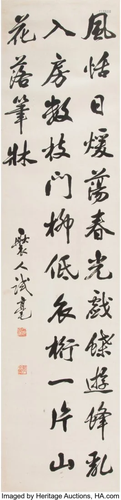 風恬日煖蕩春光戲蝶遊蜂亂
入房數枝門柳低衣桁一片山
花落筆牀
人試毫
Imaged by Heritage Auctions, HA.com